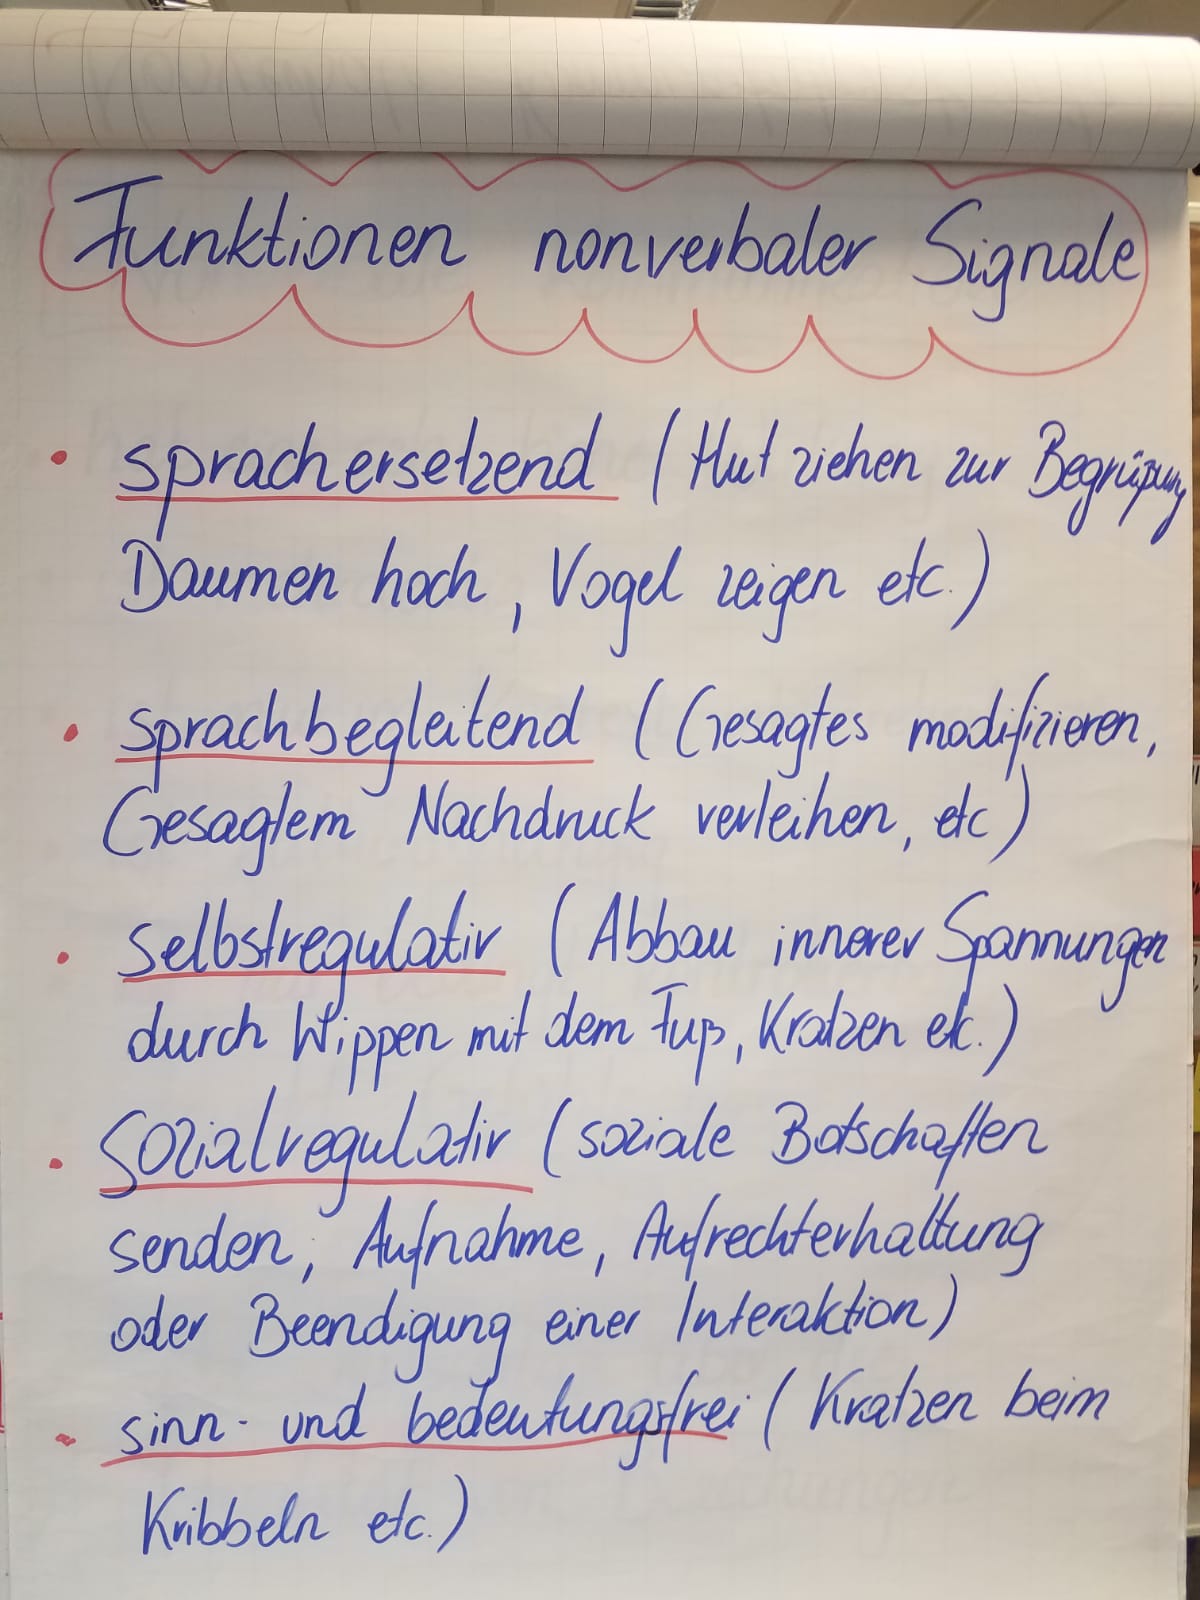 Funktionen nonverbaler Signale
• sprachersetzend (Hut ziehen zur Begrüßung
Daumen hoch, Vogel zeigen etc.)
• sprachbegleitend (Gesagtes modifizieren,
Gesagtem Nachdruck verleihen, etc)
• selbstregulativ (Abbau innerer Spannungen
durch Wippen mit dem Fuß, Kratzen etc.)
• sozialregulativ (soziale Botschaften
senden, Aufnahme, Aufrechterhaltung
oder Beendigung einer Interaktion)
- sinn- und bedeutungsfrei (Kratzen beim
Kribbeln etc.)